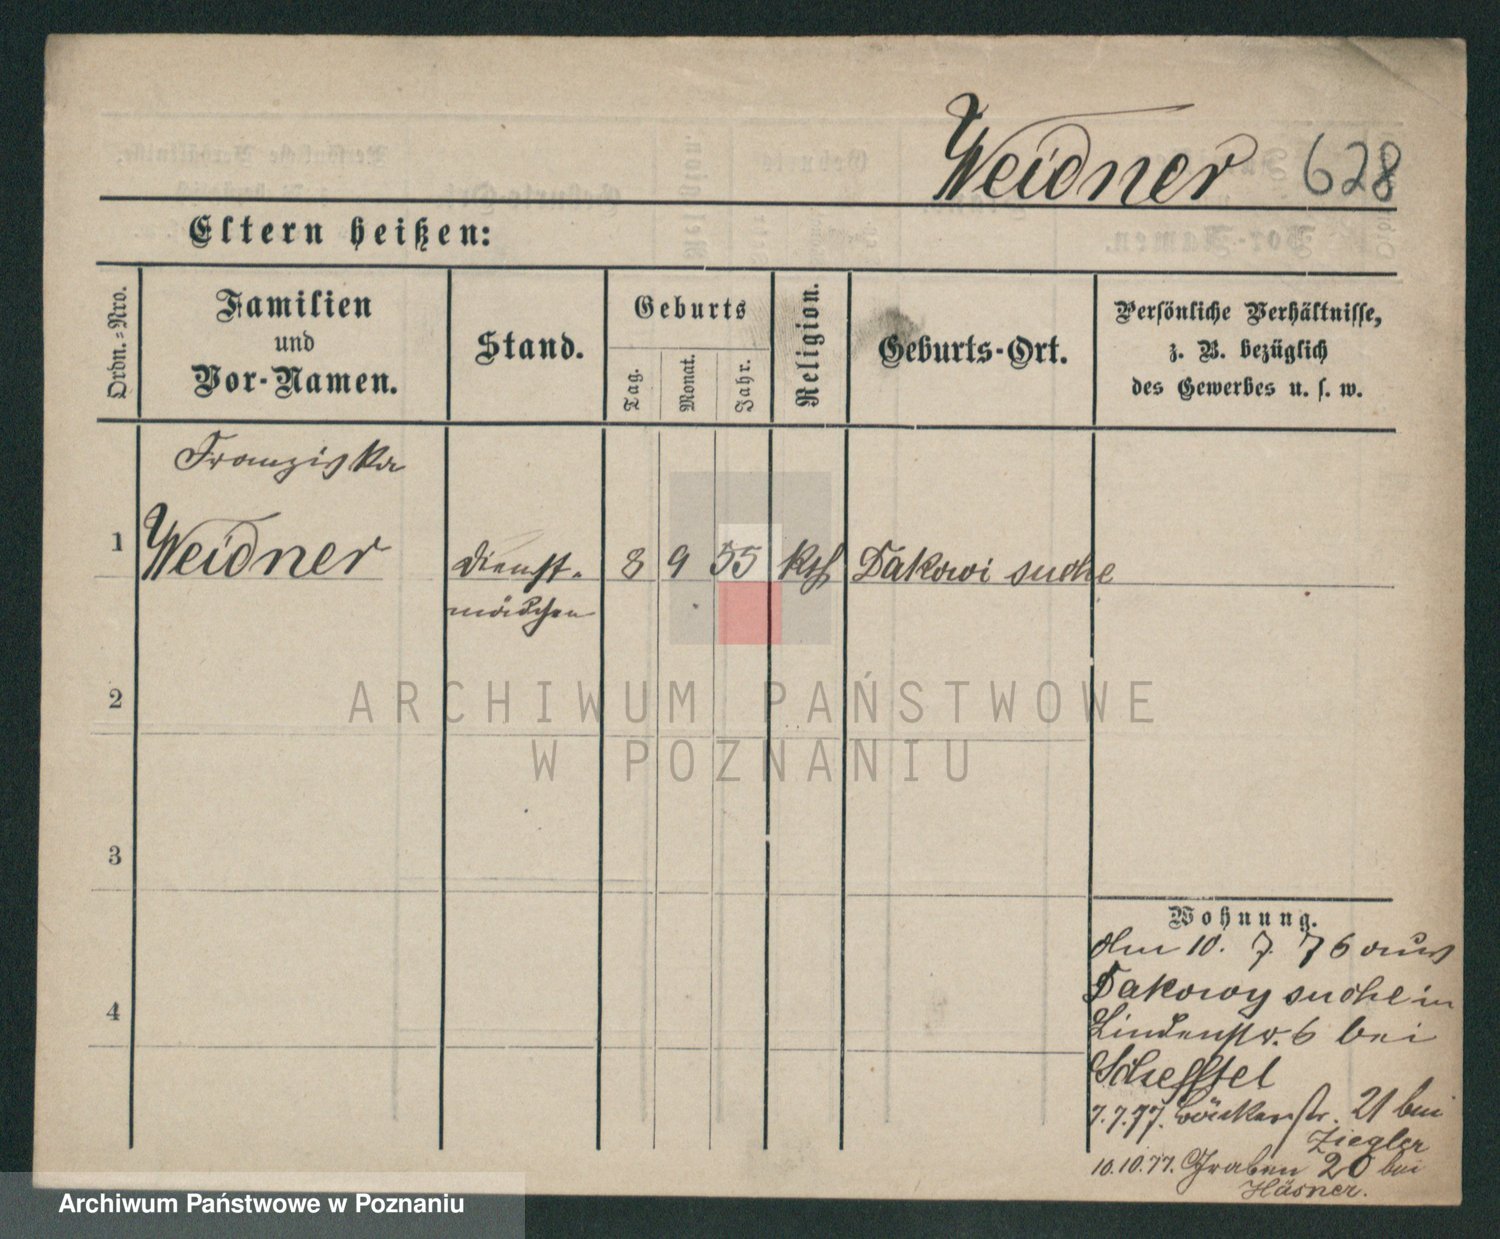 Weidner 628
Eltern heißen:
Ordn.=Nro.
Familien
und
Vor-Namen.
Stand.
Geburts
Tag.
Monat.
Jahr.
Religion.
Geburts-Ort.
Persönliche Verhältnisse,
z. B. bezüglich
des Gewerbes u. s. w.
Franziska
1 Weidner Dienst- 8 9 55 kth Dakowi suche
mädchen
ARCHIWUM PAŃSTWOWE
W POZNANIU
2
3
4
Wohnung.
Am 10. 7. 76 aus
Dakowy suche in
Lindenstr. 6 bei
Scheffel
7.7.77. Bäckerstr. 21 bei
Ziegler
10.10.77. Graben 20 bei
Häsner.
Archiwum Państwowe w Poznaniu